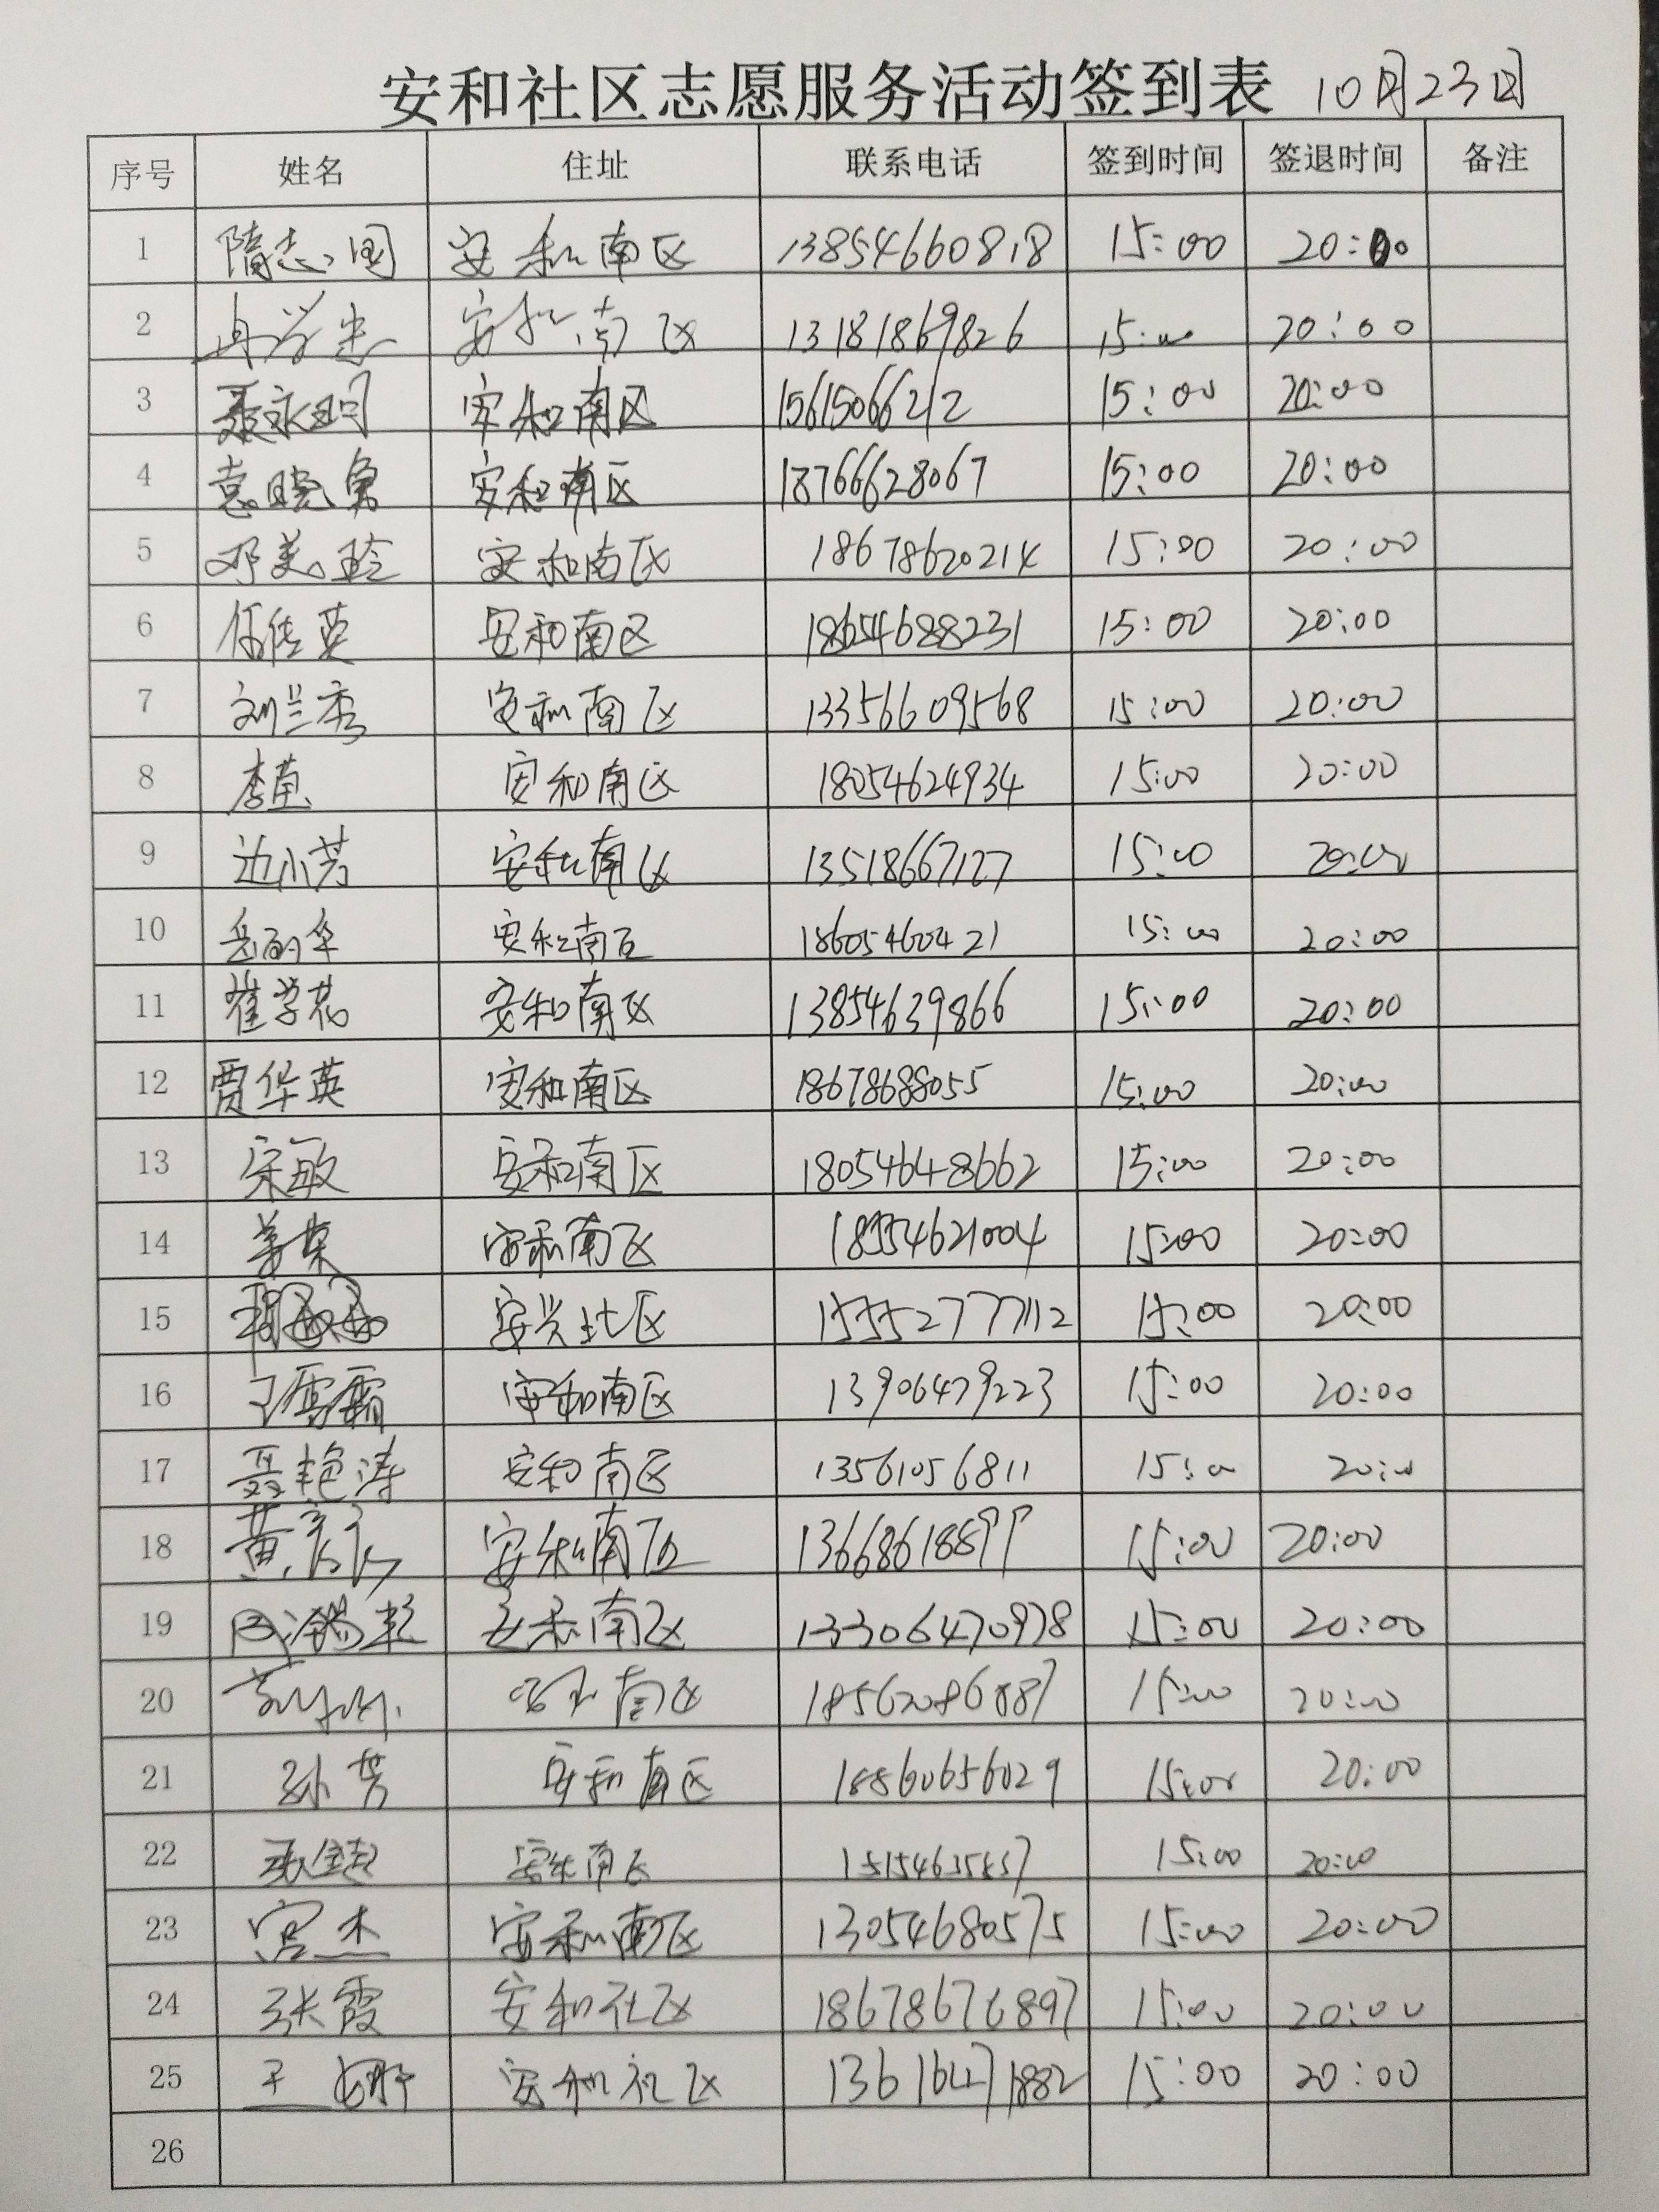 安和社区志愿服务活动签到表 10月23日
序号 姓名 住址 联系电话 签到时间 签退时间 备注
1 隋志国 安和南区 13854660818 15:00 20:00
2 安和南区 13181869826 15:00 20:00
3 聂永明 安和南区 15615066212 15:00 20:00
4 袁晓勇 安和南区 18766628067 15:00 20:00
5 邓美玲 安和南区 18678620214 15:00 20:00
6 任传英 安和南区 18654688231 15:00 20:00
7 刘兰秀 安和南区 13356609568 15:00 20:00
8 李苗 安和南区 18054624934 15:00 20:00
9 边小芳 安和南区 13518667127 15:00 20:00
10 岳丽华 安和南区 18605460421 15:00 20:00
11 崔学花 安和南区 13854639866 15:00 20:00
12 贾华英 安和南区 18678688055 15:00 20:00
13 宋敏 安和南区 18054648662 15:00 20:00
14 姜荣 安和南区 18554621004 15:00 20:00
15 安兴北区 15:00 20:00
16 丁雪霜 安和南区 13906479223 15:00 20:00
17 聂艳涛 安和南区 13561056811 15:00 20:00
18 安和南区 13668618899 15:00 20:00
19 安和南区 13306470978 15:00 20:00
20 南区 15:00 20:00
21 孙芳 安和南区 18860656029 15:00 20:00
22 安和南区 15:00 20:00
23 宫杰 安和南区 13054680575 15:00 20:00
24 张霞 安和社区 18678676897 15:00 20:00
25 王娜 安和社区 13616471882 15:00 20:00
26